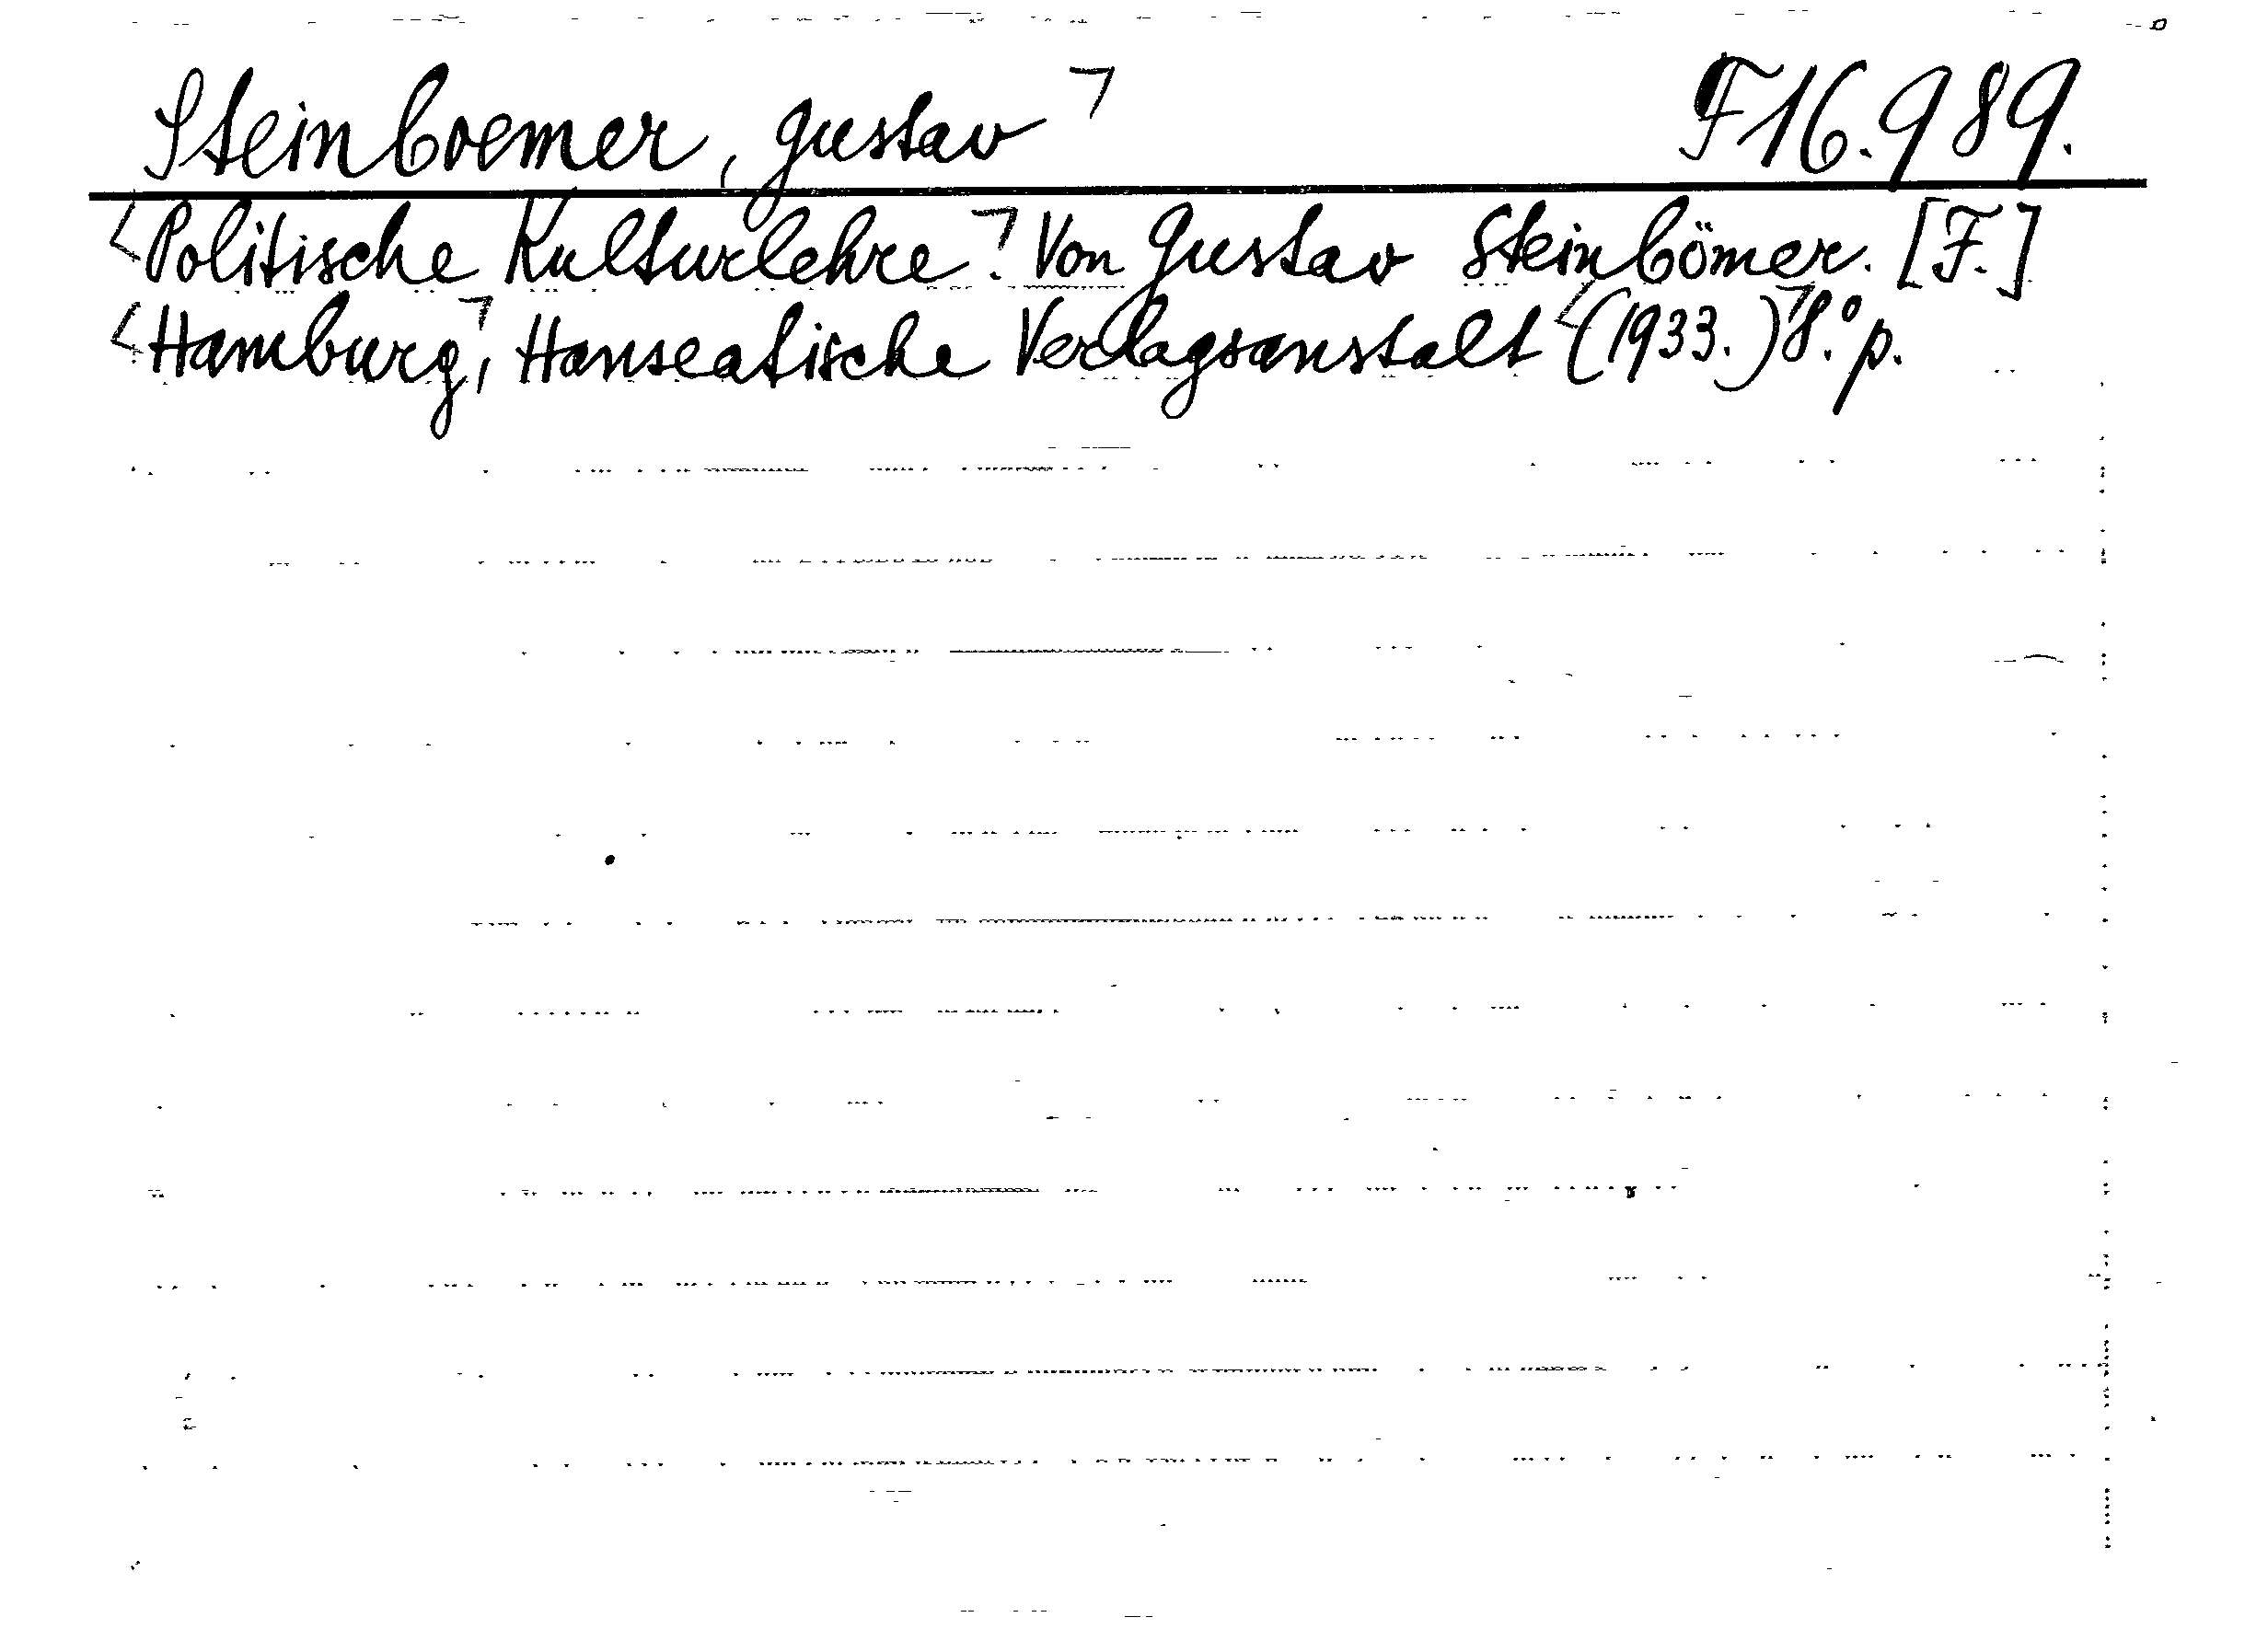 Steinboemer, Gustav F 16.989.
Politische Kulturlehre. Von Gustav Steinbömer. [F.]
Hamburg, Hanseatische Verlagsanstalt (1933.) 8.° p.